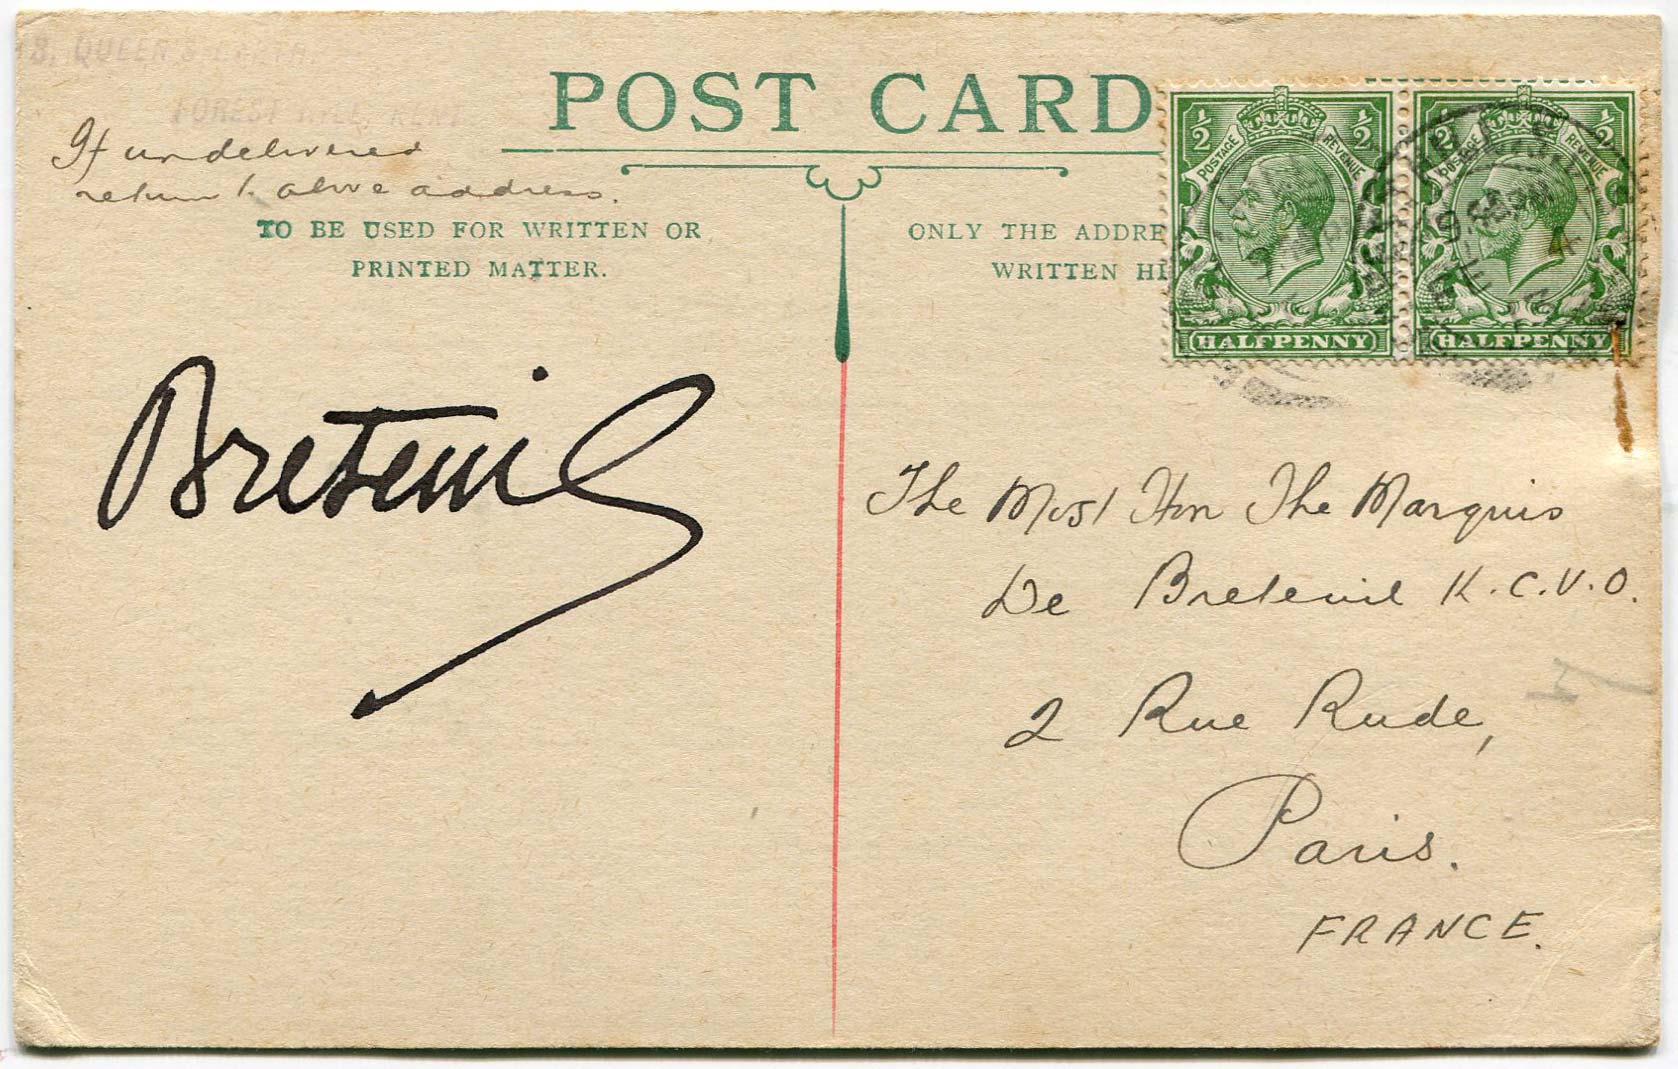 FOREST HILL, KENT
If undelivered
return to above address.
POST CARD
TO BE USED FOR WRITTEN OR
PRINTED MATTER.
ONLY THE ADDRE
WRITTEN HE
½ ½
POSTAGE REVENUE
HALFPENNY
½ ½
POSTAGE REVENUE
HALFPENNY
Breteuil
The Most Hon The Marquis
De Breteuil K.C.V.O.
2 Rue Rude,
Paris.
FRANCE.